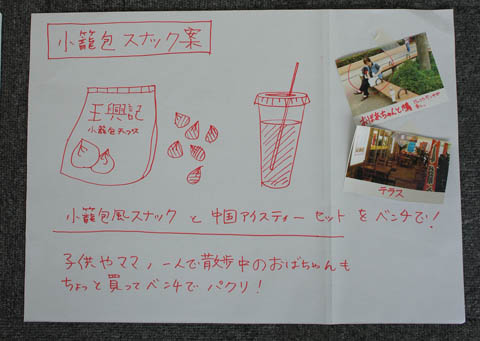 小籠包 スナック案
王興記
小籠包チップス
おばあちゃんと孫
テラス
小籠包風スナック と 中国アイスティー セット を ベンチで!
子供やママ、一人で散歩中のおばちゃんも
ちょっと買ってベンチでパクリ!